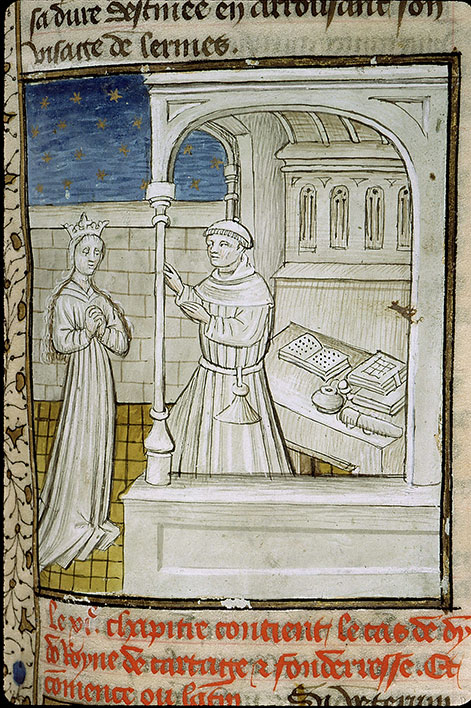 sa dure destinee en arrousant son
visaige de lermes.
Le vi.e chapitre contient le cas de dy
do Royne de cartage & fonderresse. Et
comence ou latin